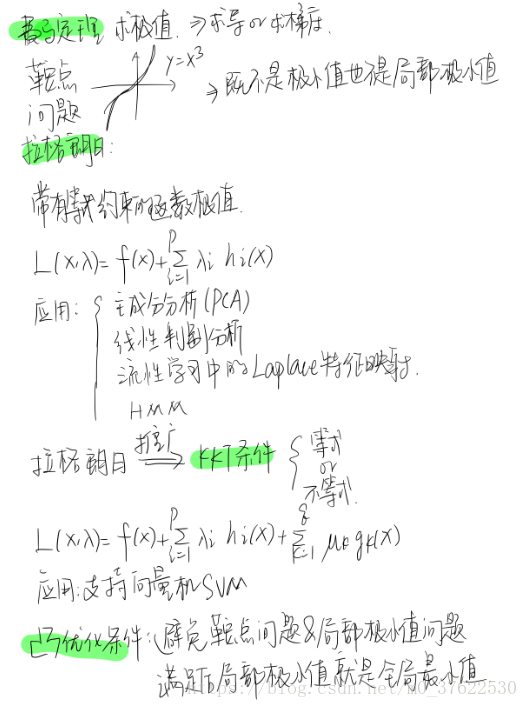 费马定理 求极值 ⇒ 求导 or 求梯度.
鞍点
问题
y=x³
⇒ 既不是极小值也不是局部极小值
拉格朗日:
带有等式约束的函数极值.
L(x,λ)= f(x)+∑_{i=1}^{p} λi hi(x)
应用: { 主成分分析(PCA)
线性判别分析
流性学习中的Laplace特征映射.
HMM
拉格朗日 推广⇒ KKT条件 { 等式
or
不等式.
L(x,λ)= f(x)+∑_{i=1}^{p} λi hi(x)+∑_{k=1}^{q} μk gk(x)
应用:支持向量机SVM
凸优化条件: 避免鞍点问题&局部极小值问题
满足后局部极小值就是全局最小值
https://blog.csdn.net/m0_37622530